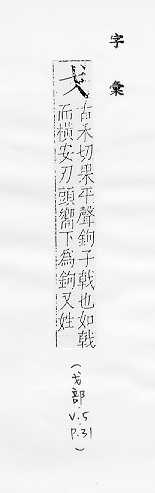 字彙
戈
古禾切果平聲鉤子戟也如戟
而橫安刃頭嚮下為鉤又姓
(戈部.
V.5
P.31
)